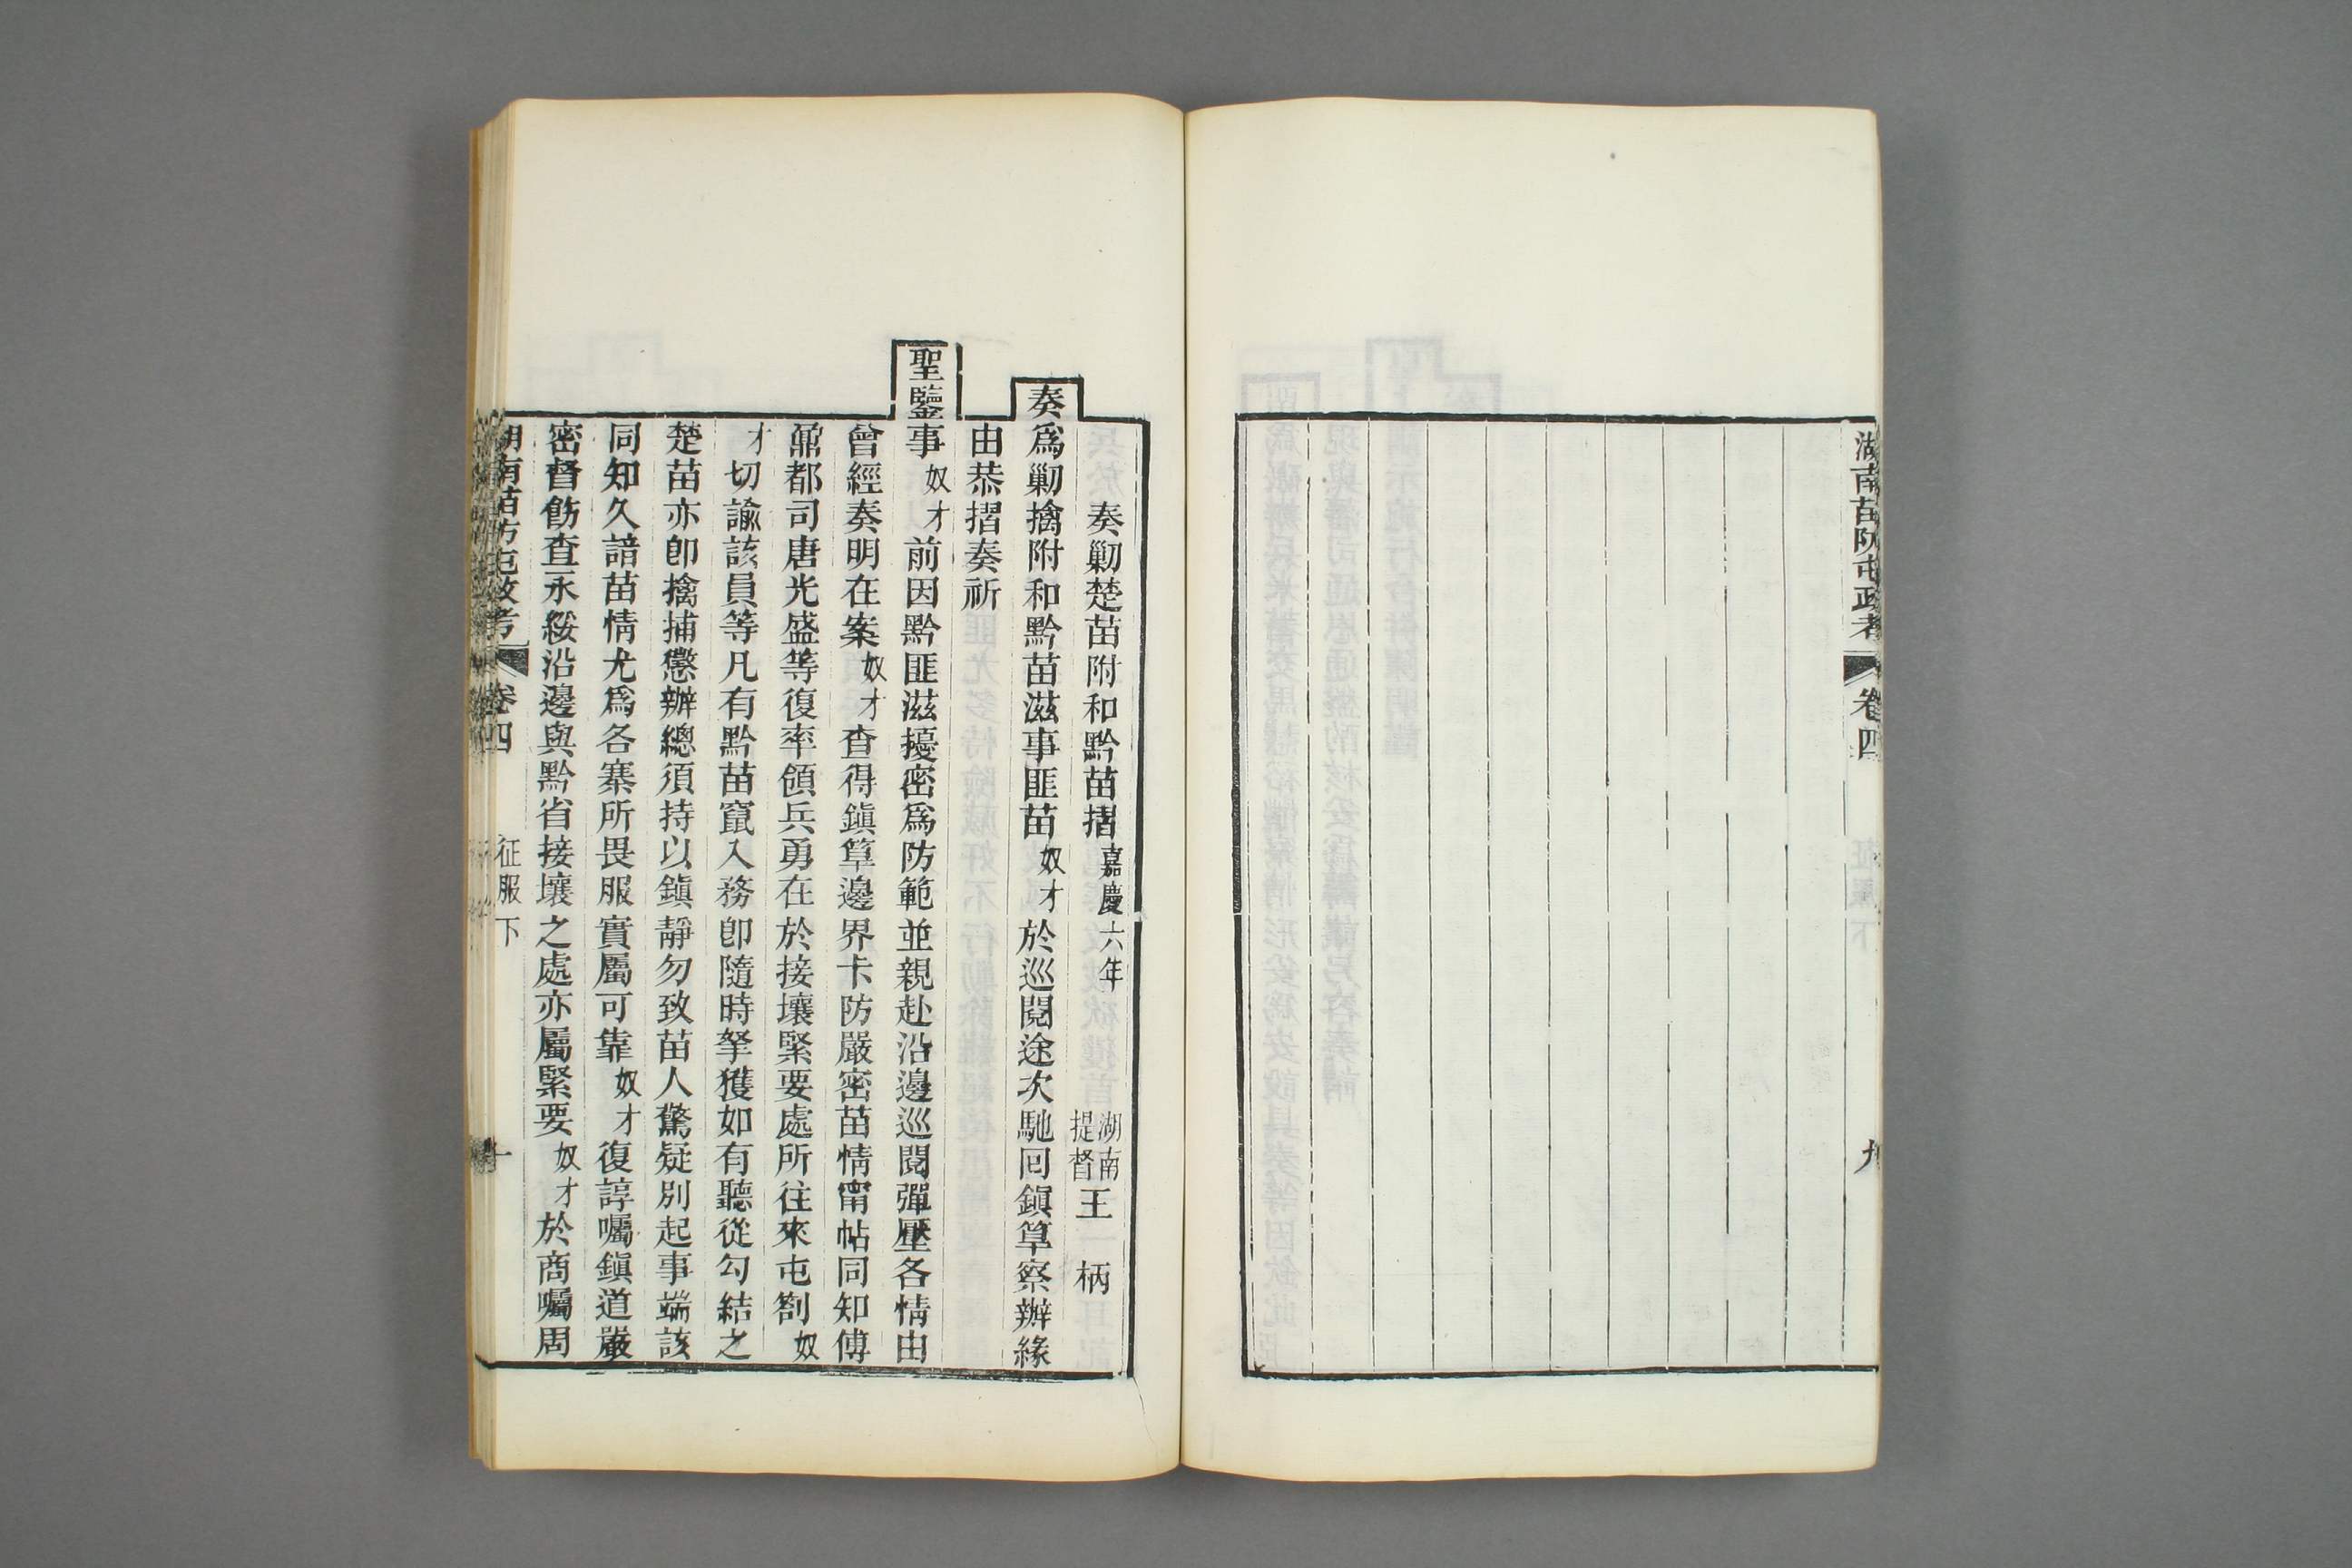 湖南苗防屯政考 卷四 九
奏勦楚苗附和黔苗摺 嘉慶六年 湖南提督王 柄
奏爲勦擒附和黔苗滋事匪苗奴才於巡閱途次馳回鎮筸察辦緣
由恭摺奏祈
聖鑒事奴才前因黔匪滋擾密爲防範並親赴沿邊巡閱彈壓各情由
曾經奏明在案奴才查得鎮筸邊界卡防嚴密苗情甯帖同知傅
鼐都司唐光盛等復率領兵勇在於接壤緊要處所往來屯劄奴
才切諭該員等凡有黔苗竄入務卽隨時拏獲如有聽從勾結之
楚苗亦卽擒捕懲辦總須持以鎮靜勿致苗人驚疑別起事端該
同知久諳苗情尤爲各寨所畏服實屬可靠奴才復諄囑鎮道嚴
密督飭查永綏沿邊與黔省接壤之處亦屬緊要奴才於商囑周
湖南苗防屯政考 卷四 征服下